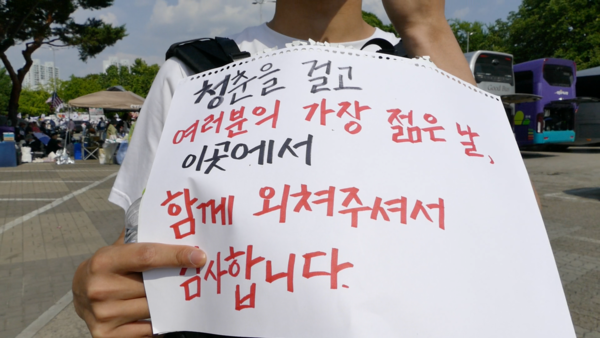 청춘을 걸고
여러분의 가장 젊은 날,
이곳에서
함께 외쳐주셔서
감사합니다.